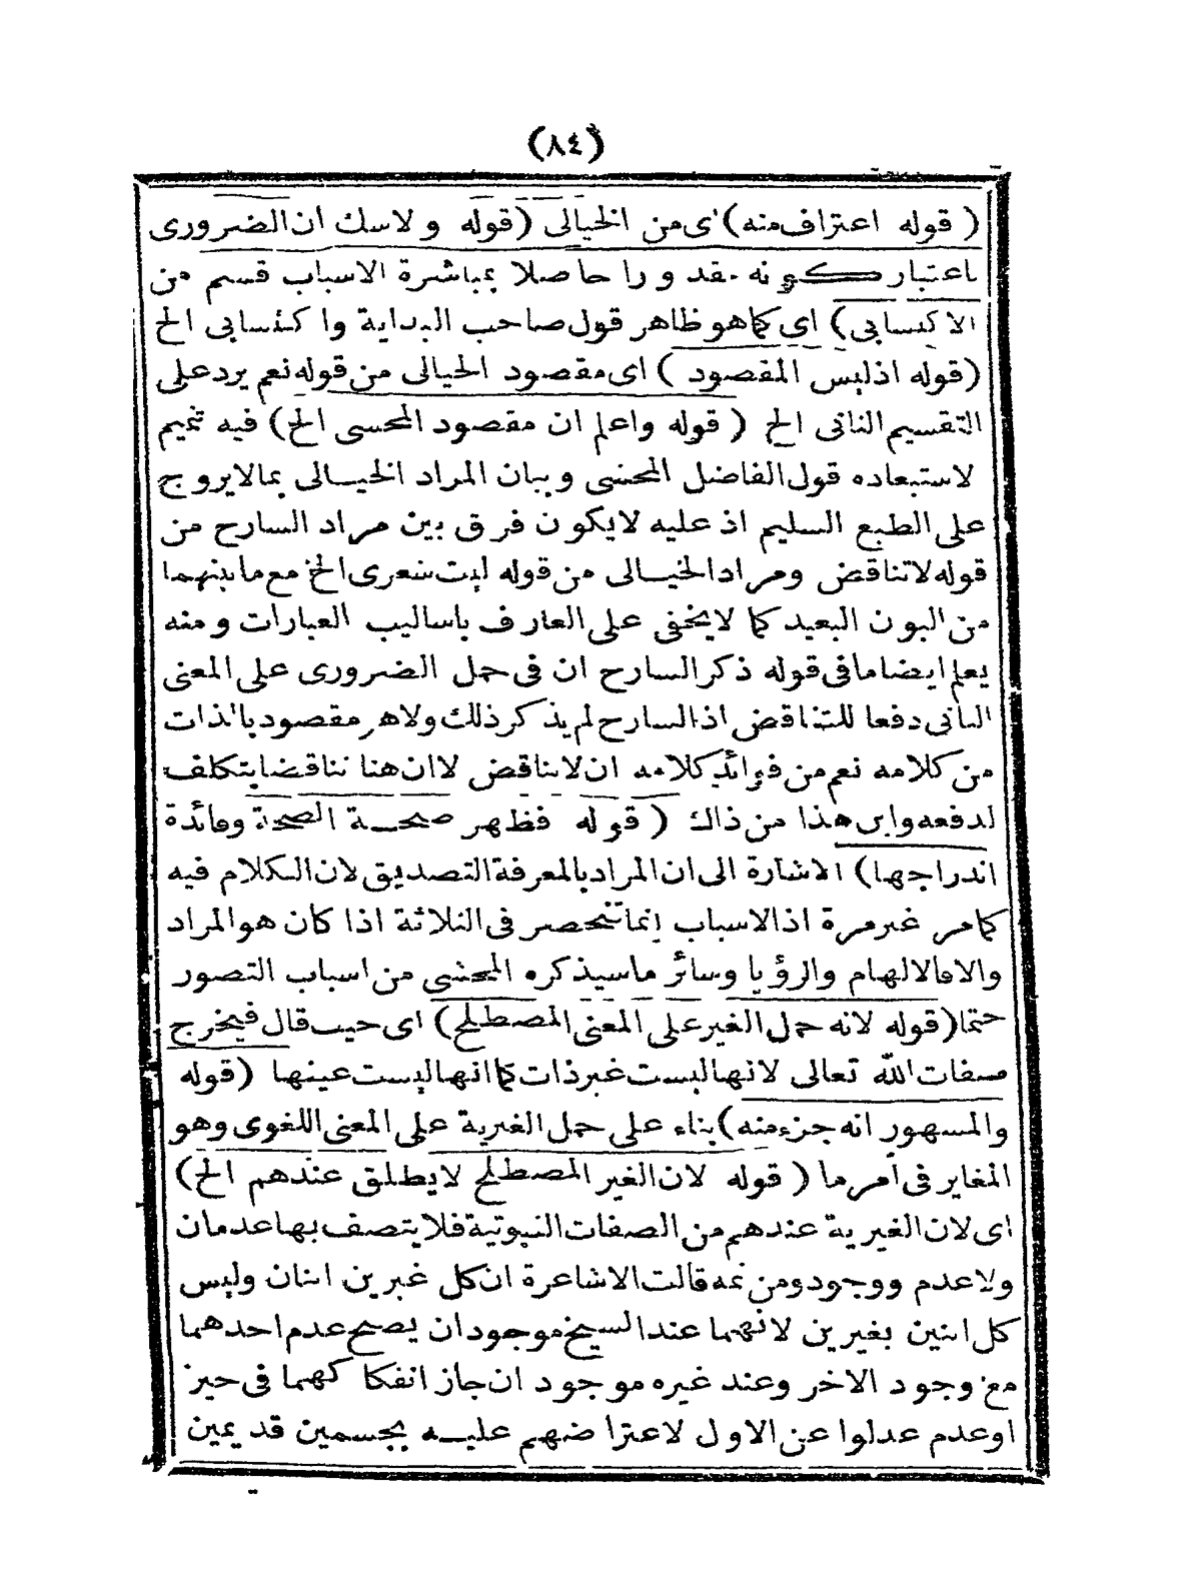 (٨٤)
( قوله اعتراف منه) اى من الخيالى (قوله ولا شك ان الضرورى
باعتبار كونه مقدورا حاصلا بمباشرة الاسباب قسم من
الاكتسابى) اى كما هو ظاهر قول صاحب البداية واكتسابى الخ
(قوله اذ ليس المقصود) اى مقصود الخيالى من قوله نعم يرد على
التقسيم الثانى الخ ( قوله واعلم ان مقصود المحشى الخ) فيه تتميم
لاستبعاده قول الفاضل المحشى وبيان المراد الخيالى بما لا يروج
على الطبع السليم اذ عليه لا يكون فرق بين مراد الشارح من
قوله لا تناقض ومراد الخيالى من قوله ليت شعرى الخ مع ما بينهما
من البون البعيد كما لا يخفى على العارف باساليب العبارات ومنه
يعلم ايضا ما فى قوله ذكر الشارح ان فى حمل الضرورى على المعنى
الثانى دفعا للتناقض اذ الشارح لم يذكر ذلك ولا هو مقصود بالذات
من كلامه نعم من فوائد كلامه ان لا تناقض لا ان هنا تناقضا يتكلف
لدفعه واين هذا من ذاك ( قوله فظهر صحة الصحة وفائدة
اندراجها) الاشارة الى ان المراد بالمعرفة التصديق لان الكلام فيه
كما مر غير مرة اذ الاسباب انما تنحصر فى الثلاثة اذا كان هو المراد
والا فالالهام والرؤيا وسائر ما سيذكره المحشى من اسباب التصور
حتما (قوله لانه حمل الغير على المعنى المصطلح) اى حيث قال فيخرج
صفات الله تعالى لانها ليست غير ذات كما انها ليست عينها (قوله
والمشهور انه جزء منه) بناء على حمل الغيرية على المعنى اللغوى وهو
المغاير فى امر ما ( قوله لان الغير المصطلح لا يطلق عندهم الخ)
اى لان الغيرية عندهم من الصفات الثبوتية فلا يتصف بها عدمان
ولا عدم ووجود ومن ثمه قالت الاشاعرة ان كل غيرين اثنان وليس
كل اثنين بغيرين لانهما عند الشيخ موجودان يصح عدم احدهما
مع وجود الاخر وعند غيره موجود ان جاز انفكاكهما فى حيز
او عدم عدلوا عن الاول لاعتراضهم عليه بجسمين قديمين